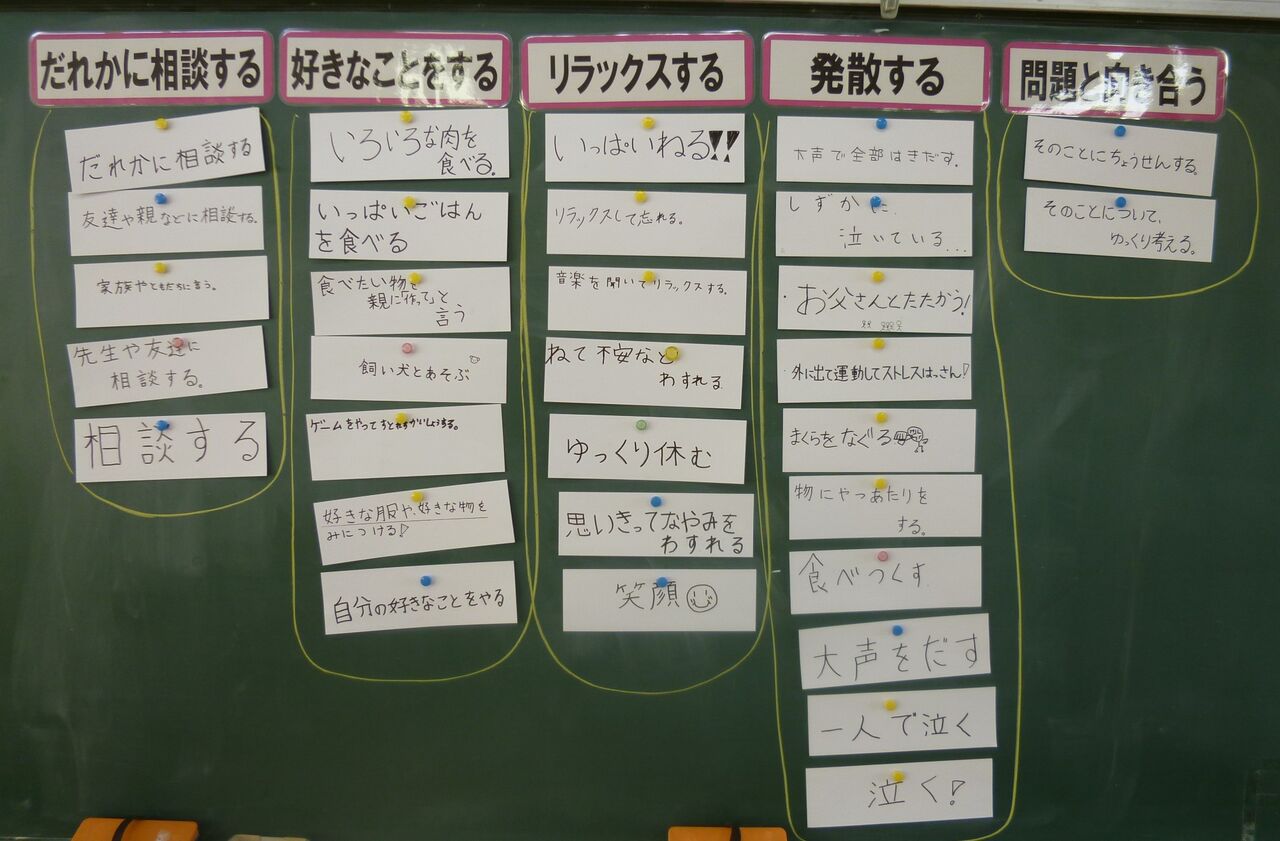 だれかに相談する
だれかに相談する
友達や親などに相談する。
家族やともだちに言う。
先生や友達に
相談する。
相談する
好きなことをする
いろいろな肉を
食べる。
いっぱいごはん
を食べる
食べたい物を
親に「作って」と
言う
飼い犬とあそぶ
ゲームをやってすとれすかいしょうする。
好きな服や、好きな物を
みにつける!
自分の好きなことをやる
リラックスする
いっぱいねる!!
リラックスして忘れる。
音楽を聞いてリラックスする。
ねて不安など
わすれる
ゆっくり休む
思いきってなやみを
わすれる
笑顔
発散する
大声で全部はきだす。
しずかに
泣いている...
・お父さんとたたかう!
外に出て運動してストレスはっさん!
まくらをなぐる
物にやつあたりを
する。
食べつくす
大声をだす
一人で泣く
泣く!
問題と向き合う
そのことにちょうせんする。
そのことについて、
ゆっくり考える。